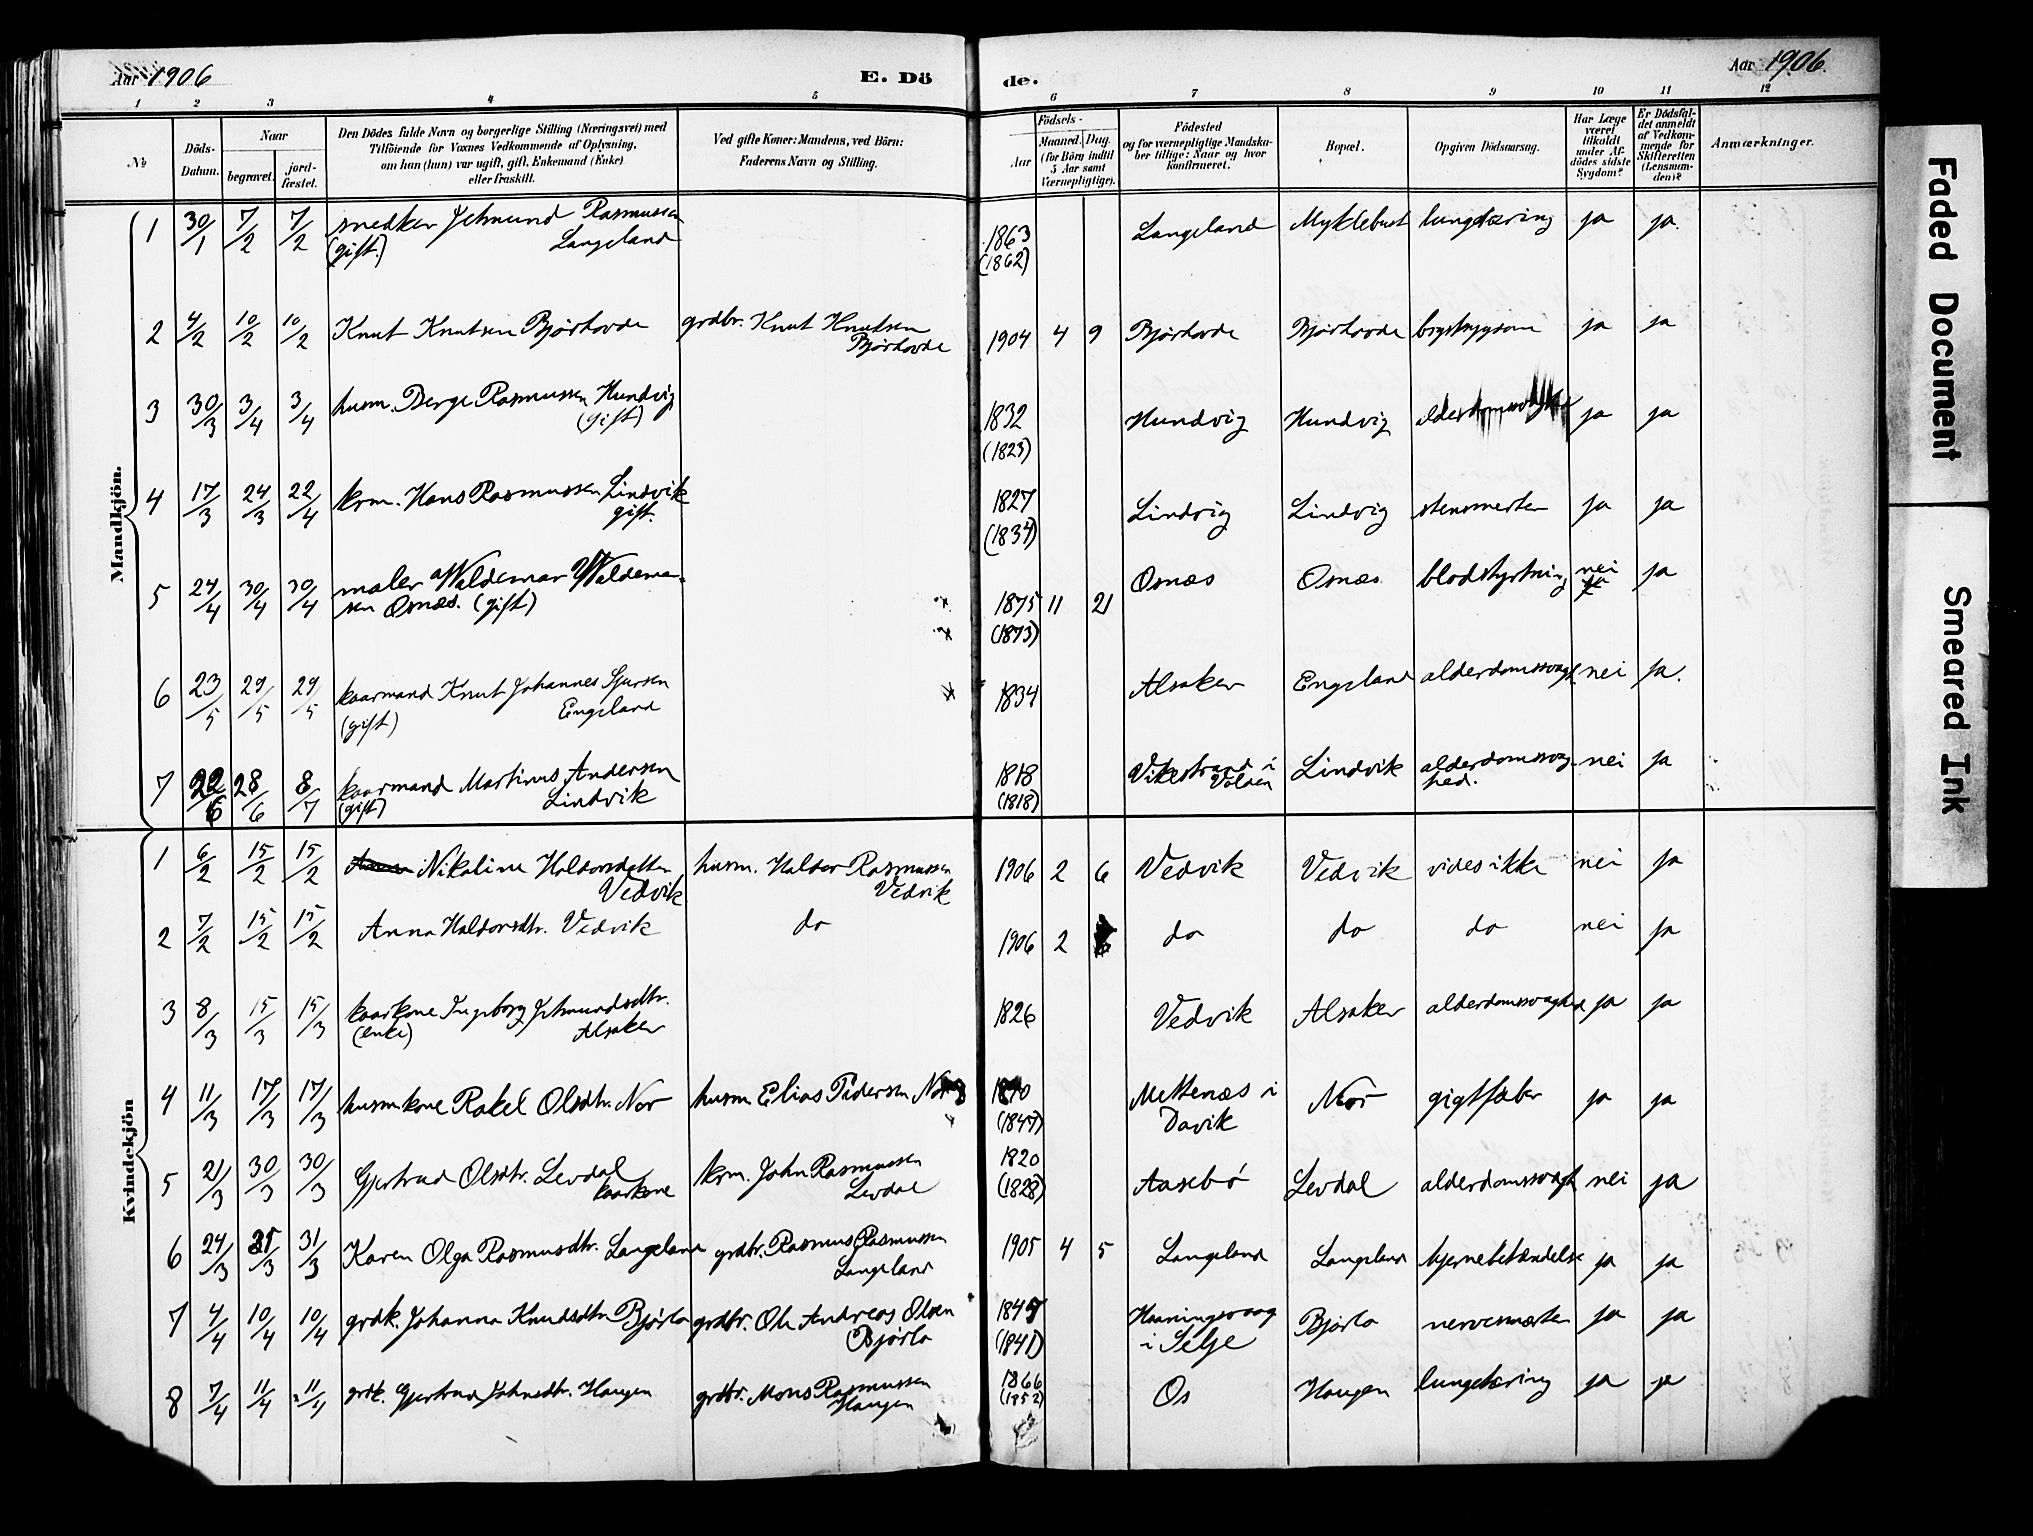 Aar 1906
E. Dö de.
Aar 1906.
1 2 3 4 5 6 7 8 9 10 11 12
№ Döds-Datum. Naar begravet. jordfæstet. Den Dödes fulde Navn og borgerlige Stilling (Næringsvei) med Tilföiende for Voxnes Vedkommende af Oplysning, om han (hun) var ugift, gift, Enkemand (Enke) eller fraskilt. Ved gifte Koner: Mandens, ved Börn: Faderens Navn og Stilling. Födsels- Aar Maaned. Dag. (for Börn indtil 5 Aar samt Værnepligtige). Födested og for værnepligtige Mandskaber tillige: Naar og hvor konfirmeret. Bopæl. Opgiven Dödsaarsag. Har Læge været tilkaldt under Afdödes sidste Sygdom? Er Dödsfaldet anmeldt af Vedkommende for Skifteretten (Lensmanden)? Anmærkninger.
Mandkjön.
1 30/1 7/2 7/2 snedker Jetmund Rasmussen 1863 Langeland Myklebust lungetæring ja ja.
(gift.) Langeland (1862)
2 4/2 10/2 10/2 Knut Knutsen Bjørhovde grdbr. Knut Knutsen 1904 4 9 Bjørhovde Bjørhovde brystsygdom ja ja
Bjørhovde
3 30/3 3/4 3/4 husm. Berge Rasmussen Hundvig 1832 Hundvig Hundvig alderdomssvaghed ja ja
(gift) (1823)
4 17/3 24/3 22/4 krm. Hans Rasmussen Lindvik 1827 Lindvig Lindvig stensmerter ja ja
gift. (1834)
5 24/4 30/4 30/4 maler Waldemar Waldemar- 1875 11 21 Osnæs Osnæs. blodstyrtning nei ja
sen Osnæs. (gift) (1873)
6 23/5 29/5 29/5 kaarmand Knut Johannes Sjursen 1834 Alsaker Engeland alderdomssvagh. nei ja.
(gift) Engeland
7 22/6 28/6 8/7 kaarmand Martinus Andersen 1818 Vikestrand i Lindvik alderdomssvag- nei ja
(gift) Lindvik (1818) Volden hed.
Kvindekjön
1 6/2 15/2 15/2 Nikoline Haldorsdatter husm. Haldor Rasmussen 1906 2 6 Vedvik Vedvik vides ikke nei ja
Vedvik Vedvik
2 7/2 15/2 15/2 Anna Haldorsdtr. Vedvik do 1906 2 do do do nei ja
3 8/3 15/3 15/3 kaarkone Ingeborg Jetmundsdtr. 1826 Vedvik Alsaker alderdomssvaghed ja ja
(enke) Alsaker
4 11/3 17/3 17/3 husmkone Rakel Olsdtr. Nor husm Elias Pedersen Nor Mettenæs i Nor gigtfeber ja ja
(1847) Davik
5 21/3 30/3 30/3 Gjertrud Olsdtr. Levdal krm. John Rasmussen 1820 Aasebø Levdal alderdomssvagh nei ja
kaarkone Levdal (1828)
6 24/3 31/3 31/3 Karen Olga Rasmusdtr. Langeland grdbr. Rasmus Rasmussen 1905 4 5 Langeland Langeland hjernebetændelse ja ja
Langeland
7 4/4 10/4 10/4 grdk. Johanna Knudsdtr Bjørlo grdbr. Ole Andreas Olsen 1845 Honningsvaag Bjørlo nervesmerter ja ja
Bjørlo (1841) i Selje
8 7/4 11/4 11/4 grdk. Gjertrud Johnsdtr. Haugen grdbr. Mons Rasmussen 1866 Os Haugen lungetæring ja ja
Haugen (1852)
Faded Document
Smeared Ink